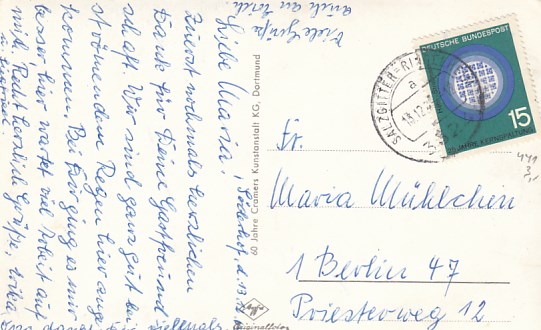 Viele Grüße
auch an Erich.
Söderhof, d. 13.
Liebe Maria,
zuerst nochmals herzlichen
Dank für Deine Gastfreund
schaft. Wir sind ganz gut bei
strömendem Regen hier ange
kommen. Bei Dir ging es mir
besser, hier wartet viel Arbeit auf
mich. Recht herzliche Grüße,
60 Jahre Cramers Kunstanstalt KG, Dortmund
Agfa
DEUTSCHE BUNDESPOST
15
SALZGITTER-RI
a
13.12.
Fr.
Maria Mühlchen
1 Berlin 47
Priesterweg 12